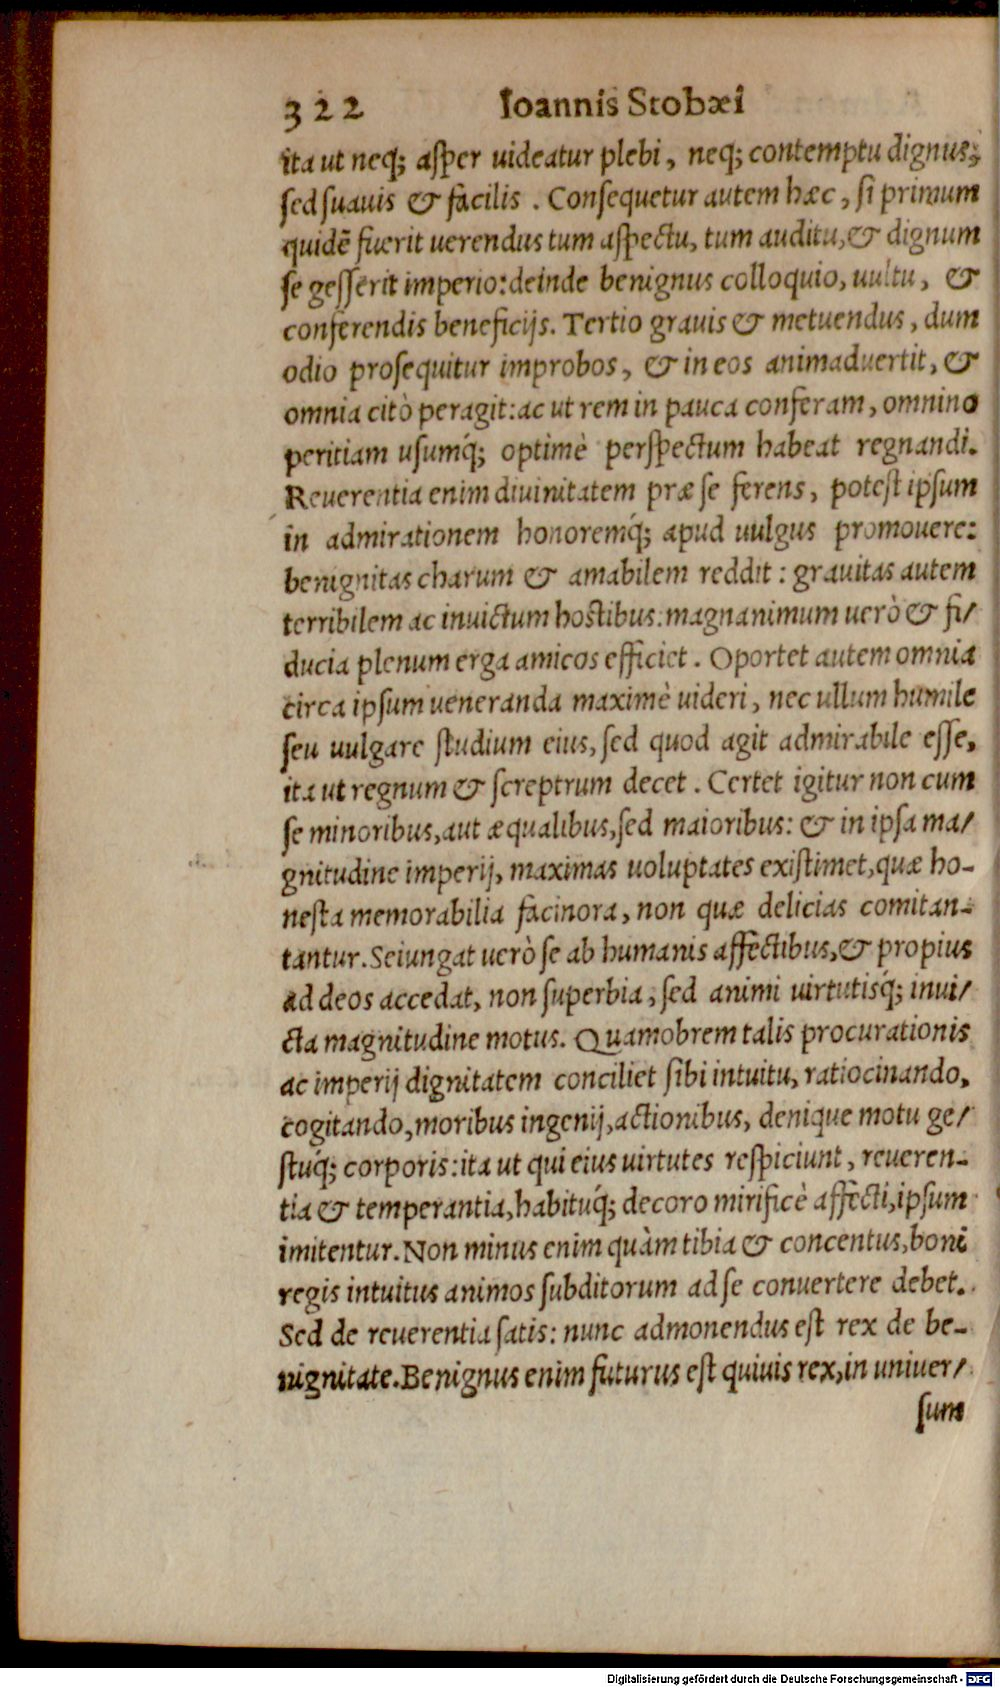 322 Ioannis Stobæi
ita ut neq; asper uideatur plebi, neq; contemptu dignus,
sed suauis & facilis. Consequetur autem hæc, si primum
quidē fuerit uerendus tum aspectu, tum auditu, & dignum
se gesserit imperio: deinde benignus colloquio, uultu, &
conferendis beneficijs. Tertio grauis & metuendus, dum
odio prosequitur improbos, & in eos animaduertit, &
omnia citò peragit: ac ut rem in pauca conferam, omnino
peritiam usumq́; optimè perspectum habeat regnandi.
Reuerentia enim diuinitatem præ se ferens, potest ipsum
in admirationem honoremq́; apud uulgus promouere:
benignitas charum & amabilem reddit: grauitas autem
terribilem ac inuictum hostibus: magnanimum uerò & fi/
ducia plenum erga amicos efficiet. Oportet autem omnia
circa ipsum ueneranda maximè uideri, nec ullum humile
seu uulgare studium eius, sed quod agit admirabile esse,
ita ut regnum & screptrum decet. Certet igitur non cum
se minoribus, aut æqualibus, sed maioribus: & in ipsa ma/
gnitudine imperij, maximas uoluptates existimet, quæ ho-
nesta memorabilia facinora, non quæ delicias comitan-
tantur. Seiungat uerò se ab humanis affectibus, & propius
ad deos accedat, non superbia, sed animi uirtutisq́; inui/
cta magnitudine motus. Quamobrem talis procurationis
ac imperij dignitatem conciliet sibi intuitu, ratiocinando,
cogitando, moribus ingenij, actionibus, denique motu ge/
stuq́; corporis: ita ut qui eius uirtutes respiciunt, reueren-
tia & temperantia, habituq́; decoro mirificè affecti, ipsum
imitentur. Non minus enim quàm tibia & concentus, boni
regis intuitus animos subditorum ad se conuertere debet.
Sed de reuerentia satis: nunc admonendus est rex de be-
nignitate. Benignus enim futurus est quiuis rex, in uniuer/
sum
Digitalisierung gefördert durch die Deutsche Forschungsgemeinschaft - DFG